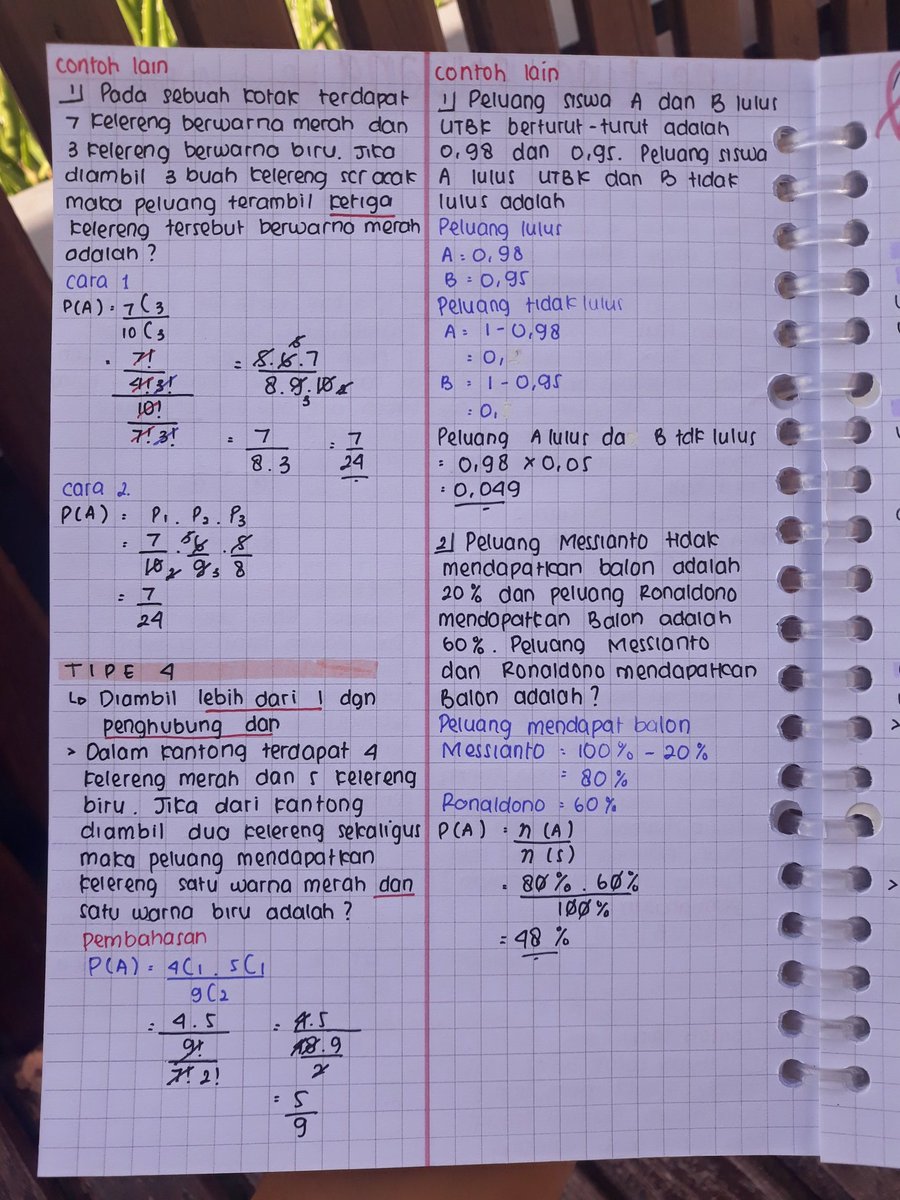 contoh lain
1) Pada sebuah kotak terdapat
7 kelereng berwarna merah dan
3 kelereng berwarna biru. Jika
diambil 3 buah kelereng scr acak
maka peluang terambil ketiga
kelereng tersebut berwarna merah
adalah ?
cara 1
P(A) = 7C3
10C3
= 7!
4! 3!
10!
7! 3!
= 5.6.7
8.9.10
= 7
8.3
= 7
24
cara 2
P(A) = P1 . P2 . P3
= 7 . 6 . 5
10 9 8
= 7
24
TIPE 4
↳ Diambil lebih dari 1 dgn
penghubung dan
> Dalam kantong terdapat 4
kelereng merah dan 5 kelereng
biru. Jika dari kantong
diambil dua kelereng sekaligus
maka peluang mendapatkan
kelereng satu warna merah dan
satu warna biru adalah ?
pembahasan
P(A) = 4C1 . 5C1
9C2
= 4.5
9!
7! 2!
= 4.5
8.9
2
= 5
9
contoh lain
1) Peluang siswa A dan B lulus
UTBK berturut-turut adalah
0,98 dan 0,95. Peluang siswa
A lulus UTBK dan B tidak
lulus adalah
Peluang lulus
A = 0,98
B = 0,95
Peluang tidak lulus
A = 1 - 0,98
= 0,
B = 1 - 0,95
= 0,
Peluang A lulus da B tdk lulus
= 0,98 x 0,05
= 0,049
2) Peluang Messianto tidak
mendapatkan balon adalah
20% dan peluang Ronaldono
mendapatkan Balon adalah
60%. Peluang Messianto
dan Ronaldono mendapatkan
Balon adalah ?
Peluang mendapat balon
Messianto = 100% - 20%
= 80%
Ronaldono = 60%
P(A) = n(A)
n(s)
= 80% . 60%
100%
= 48 %